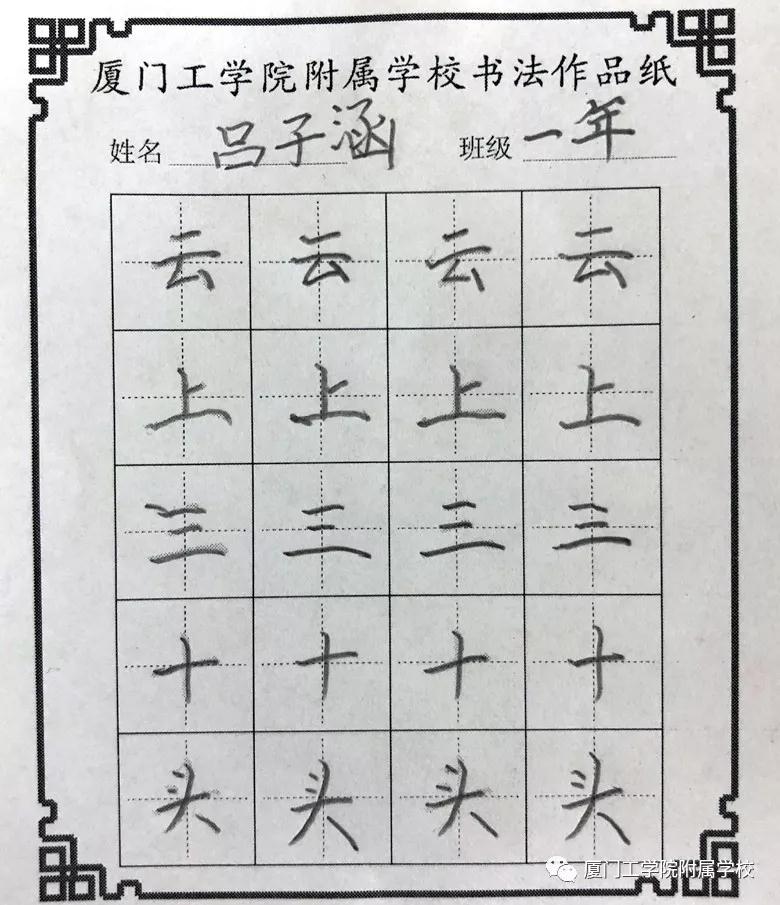 厦门工学院附属学校书法作品纸
姓名 吕子涵 班级 一年
云 云 云 云
上 上 上 上
三 三 三 三
十 十 十 十
头 头 头 头
厦门工学院附属学校